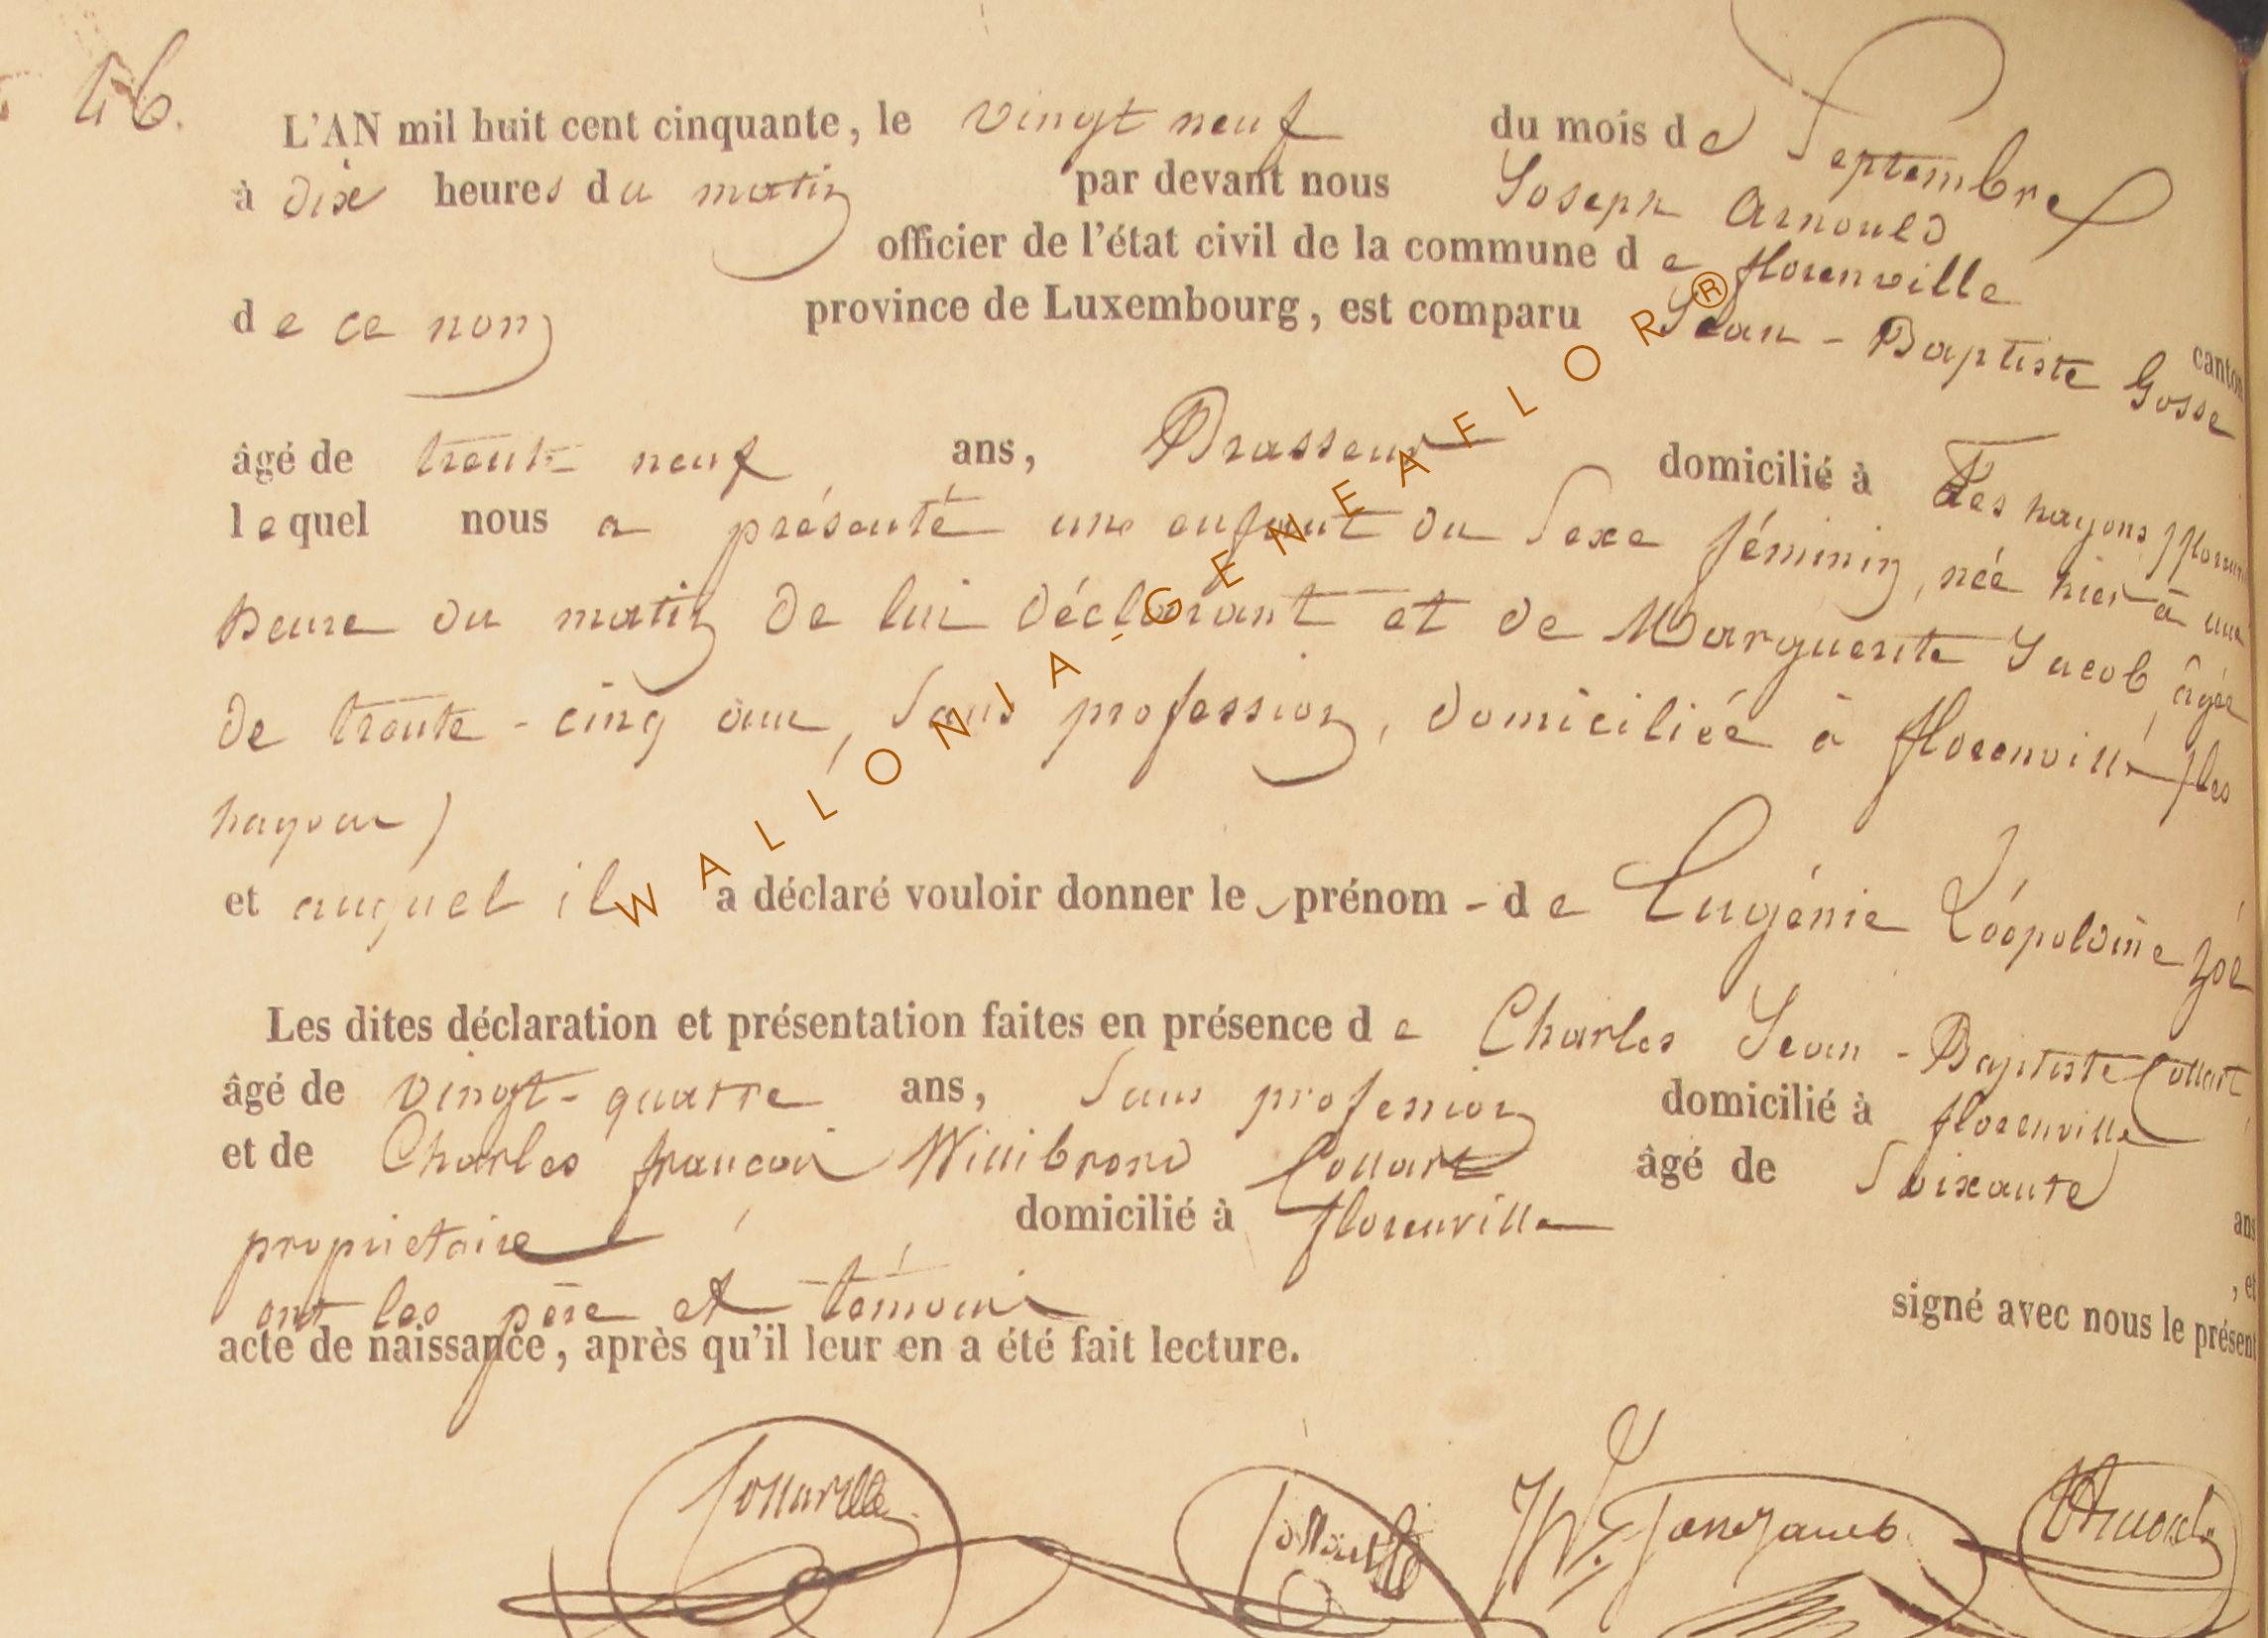 46.
L'AN mil huit cent cinquante, le vingt neuf du mois de Septembre
à dix heures du matin par devant nous Joseph Arnould
officier de l'état civil de la commune de florenville
canton
de ce nom province de Luxembourg, est comparu Jean - Baptiste Gosse
âgé de trente neuf ans, Brasseur domicilié à Les hayons
lequel nous a présenté une enfant du Sexe féminin, née hier à une
heure du matin de lui déclarant et de Marguerite Jacob âgée
de trente - cinq ans, Sans profession, domiciliée à florenville (les
hayons)
et auquel il a déclaré vouloir donner le prénom - de Eugénie Léopoldine Zoé
Les dites déclaration et présentation faites en présence de Charles Jean - Baptiste Collart
âgé de vingt - quatre ans, Sans profession domicilié à florenville
et de Charles françois Willibrord Collart âgé de Soixante
ans
propriétaire domicilié à florenville , et
ont les père et témoins signé avec nous le présent
acte de naissance, après qu'il leur en a été fait lecture.
WALLONIA-GENEAFLOR®